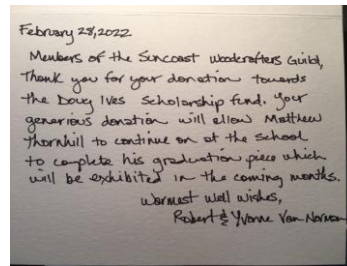 February 28, 2022
Members of the Suncoast Woodcrafters Guild,
Thank you for your donation towards
the Doug Ives Scholarship fund. Your
generious donation will allow Matthew
Thornhill to continue on at the school
to complete his graduation piece which
will be exhibited in the coming months.
Warmest well wishes,
Robert & Yvonne Van Norman